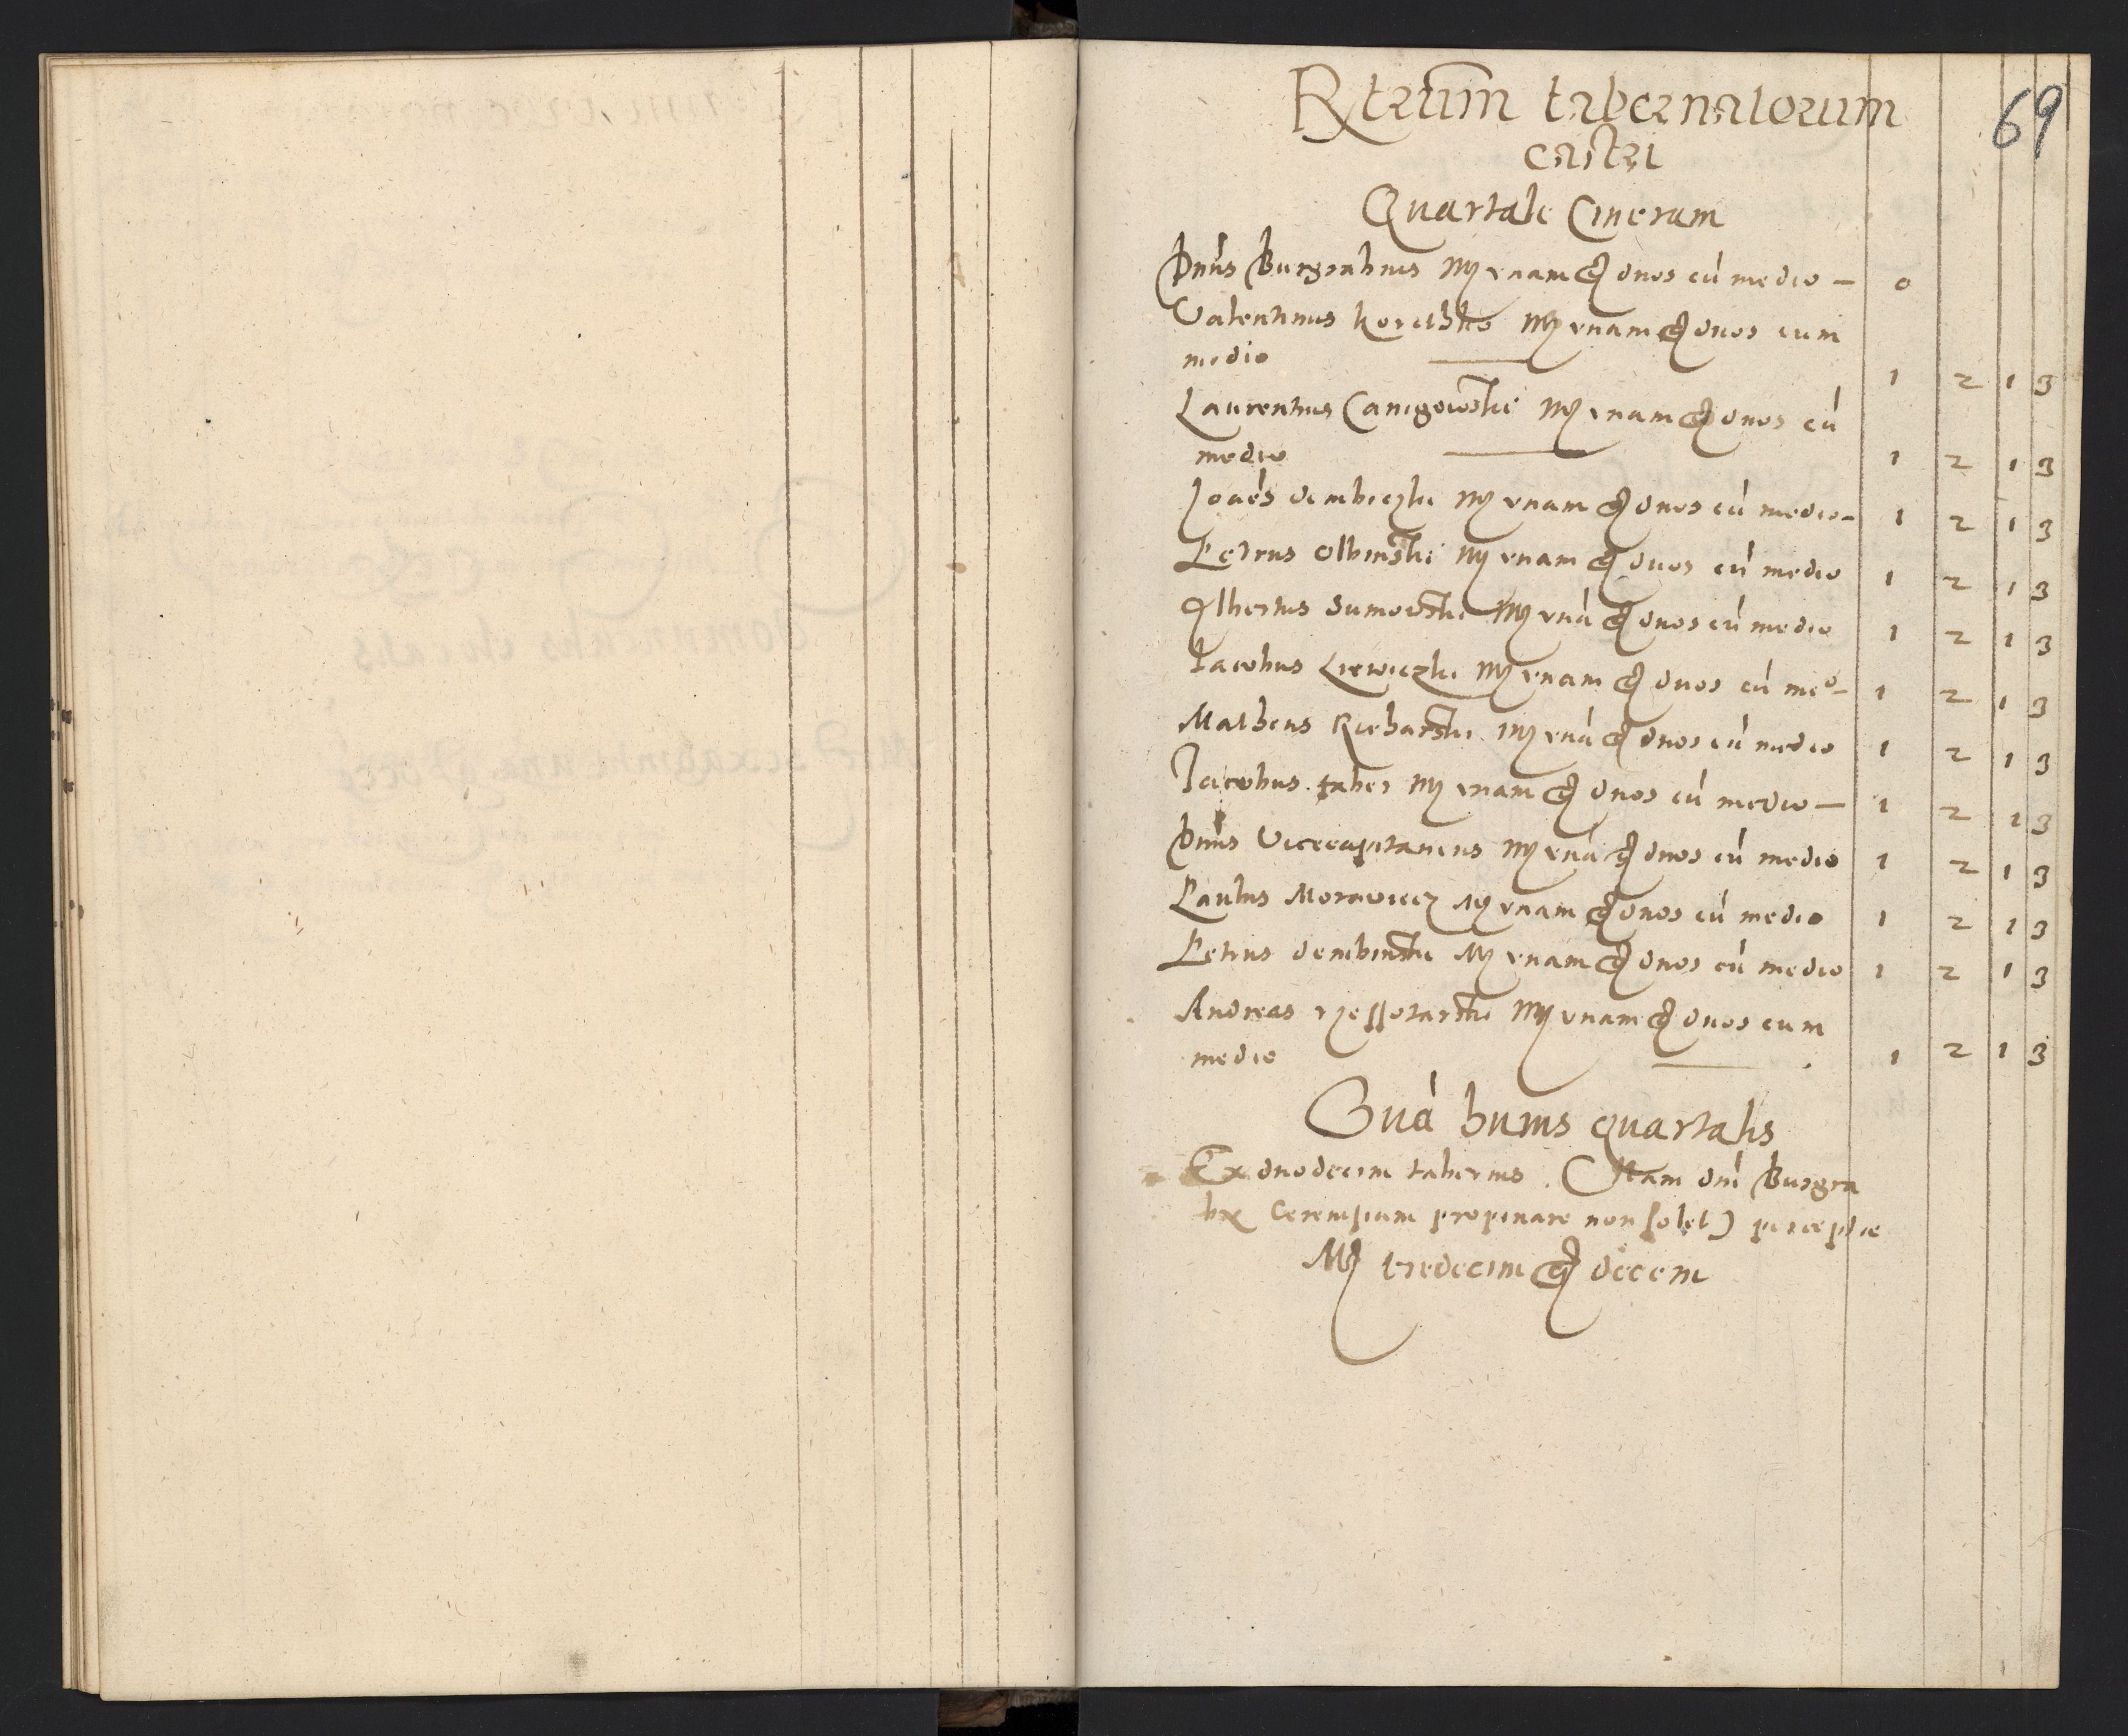 Rtrum tabernatorum
castri
69
Quartale Cineram
Dnus Burgrabius Mr unam gr duos cu medio — 0
Valentinus Mr unam gr duos cum
medio 1 2 1 3
Laurentius Mr unam gr duos cu
medio 1 2 1 3
Joaes dembiczki Mr unam gr duos cu medio 1 2 1 3
Petrus Olbinski Mr unam gr duos cu medio 1 2 1 3
Albertus Sumowski Mr una gr duos cu medio 1 2 1 3
Jacobus Mr unam gr duos cu meo 1 2 1 3
Matheus Rubarski Mr una gr duos cu medio 1 2 1 3
Jacobus faber Mr unam gr duos cu medio — 1 2 1 3
Dnus Vicecapitaneus Mr una gr duos cu medio 1 2 1 3
Paulus Morawiecz Mr unam gr duos cu medio 1 2 1 3
Petrus dembinski Mr unam gr duos cu medio 1 2 1 3
Andreas Mr unam gr duos cum
medio 1 2 1 3
Sua huius quartalis
Ex duodecim tabernis (Nam dni Burgra
bii Cereuisiam propinare non solet) perceptae
Mr tredecim gr decem